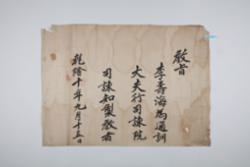 教旨
李壽海為通訓
大夫行司諫院
司諫知製教者
乾隆十年九月十五日